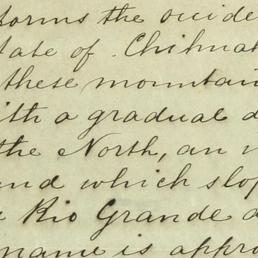 forms the occide
tate of Chihuah
these mountain
ith a gradual d
the North, an
and which slop
Rio Grande
name is appro